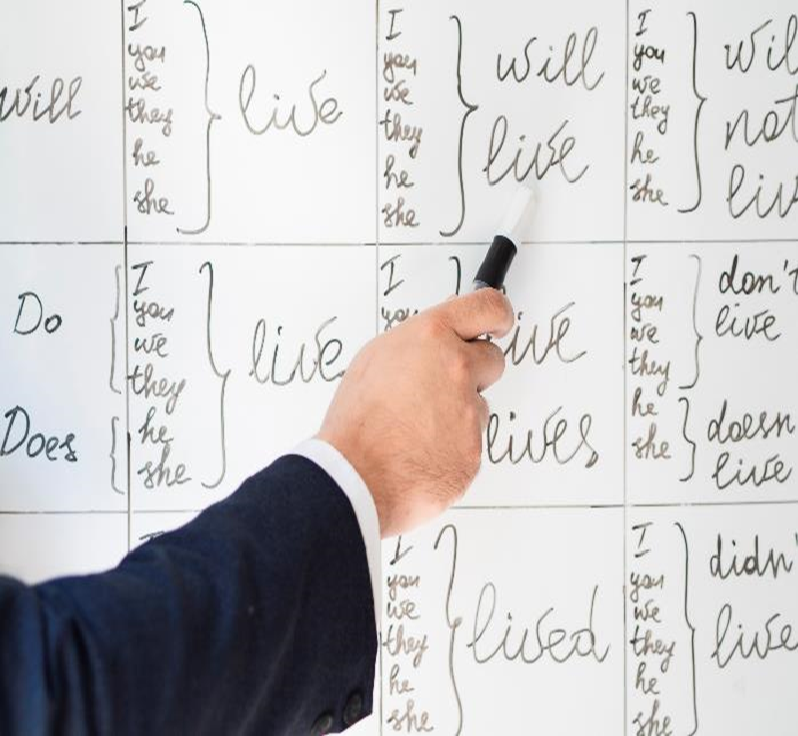 will
I
you
we
they
he
she
live
I
you
we
they
he
she
will
live
I
you
we
they
he
she
not
Do
Does
I
you
we
they
he
she
live
I
lives
I
you
we
they
he
she
don't
live
live
I
you
we
they
he
she
lived
I
you
we
they
he
she